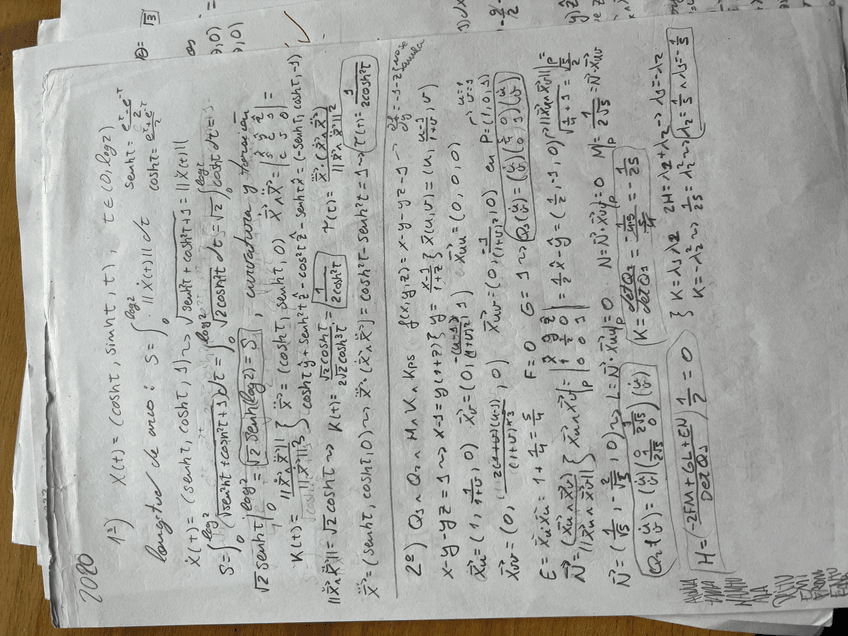 2020
1º) X(t) = (cosht, sinht, t), t∈(0, log2)
longitud de arco: S=∫₀^{log2} ||Ẋ(t)|| dt senht = (e^t - e^-t)/2 cosht = (e^t + e^-t)/2
Ẋ(t) = (senht, cosht, 1) ⇝ √(senh²t + cosh²t + 1) = ||Ẋ(t)||
S=∫₀^{log2} √(senh²t + cosh²t + 1) dt = ∫₀^{log2} √(2cosh²t) dt = √2 ∫₀^{log2} cosht dt =
√2 senht |₀^{log2} = √2 senh(log2) = S, curvatura y torsión
K(t) = ||Ẋ∧Ẍ|| / ||Ẋ||³ } Ẍ = (cosht, senht, 0) Ẋ∧Ẍ = |x̂ ŷ ẑ; s c 1; c s 0| =
cosht ŷ + senh²t ẑ - cosh²t ẑ - senht x̂ = (-senht, cosht, -1)
||Ẋ∧Ẍ|| = √2 cosht ⇝ K(t) = √2 cosht / 2√2 cosh³t = 1/(2cosh²t) τ(t) = X⃛·(Ẋ∧Ẍ) / ||Ẋ∧Ẍ||²
X⃛ = (senht, cosht, 0) ⇝ X⃛·(Ẋ∧Ẍ) = cosh²t - senh²t = 1 ⇝ τ(t) = 1/(2cosh²t)
2º) Q₁ ∧ Q₂ ∧ H ∧ K ∧ Kps f(x,y,z) = x-y-yz-1 ⇝ ∂f/∂y = -1-z
x-y-yz=1 ⇝ x-1 = y(1+z) } y = (x-1)/(1+z) } X(u,v) = (u, (u-1)/(1+v), v)
X⃗u = (1, 1/(1+v), 0) X⃗v = (0, -(u-1)/(1+v)², 1) X⃗uu = (0, 0, 0) u=1 v=1
X⃗vv = (0, 2(1+v)(u-1)/(1+v)⁴³, 0) X⃗uv = (0, -1/(1+v)², 0) en P=(1,0,1)
E = X⃗u·X⃗u = 1+1/4 = 5/4 F=0 G=1 ⇝ Q₁(u̇ v̇) = (u̇ v̇)(5/4 0; 0 1)(u̇ v̇)
N⃗ = (X⃗u∧X⃗v)/||X⃗u∧X⃗v|| } X⃗u∧X⃗v|p = |x̂ ŷ ẑ; 1 1/2 0; 0 0 1| = 1/2 x̂ - ŷ = (1/2, -1, 0) ||X⃗u∧X⃗v||p = √(1/4+1) = √5/2
N⃗ = (1/√5, -2/√5, 0) ⇝ L=N⃗·X⃗uu|p = 0 N=N⃗·X⃗vv|p = 0 M|p = 1/(2√5) = N⃗·X⃗uv
Q₂(u̇ v̇) = (u̇ v̇)(0 1/2√5; 1/2√5 0)(u̇ v̇) K = detQ₂/detQ₁ = -(1/4·5)/(5/4) = -1/25
H = (-2FM+GL+EN)/DetQ₁ · 1/2 = 0 { K=λ₁λ₂ 2H = λ₁+λ₂ ⇝ λ₁=-λ₂
K=-λ₂² ⇝ 1/25 = λ₂² ⇝ λ₂ = 1/5 ∧ λ₁ = -1/5